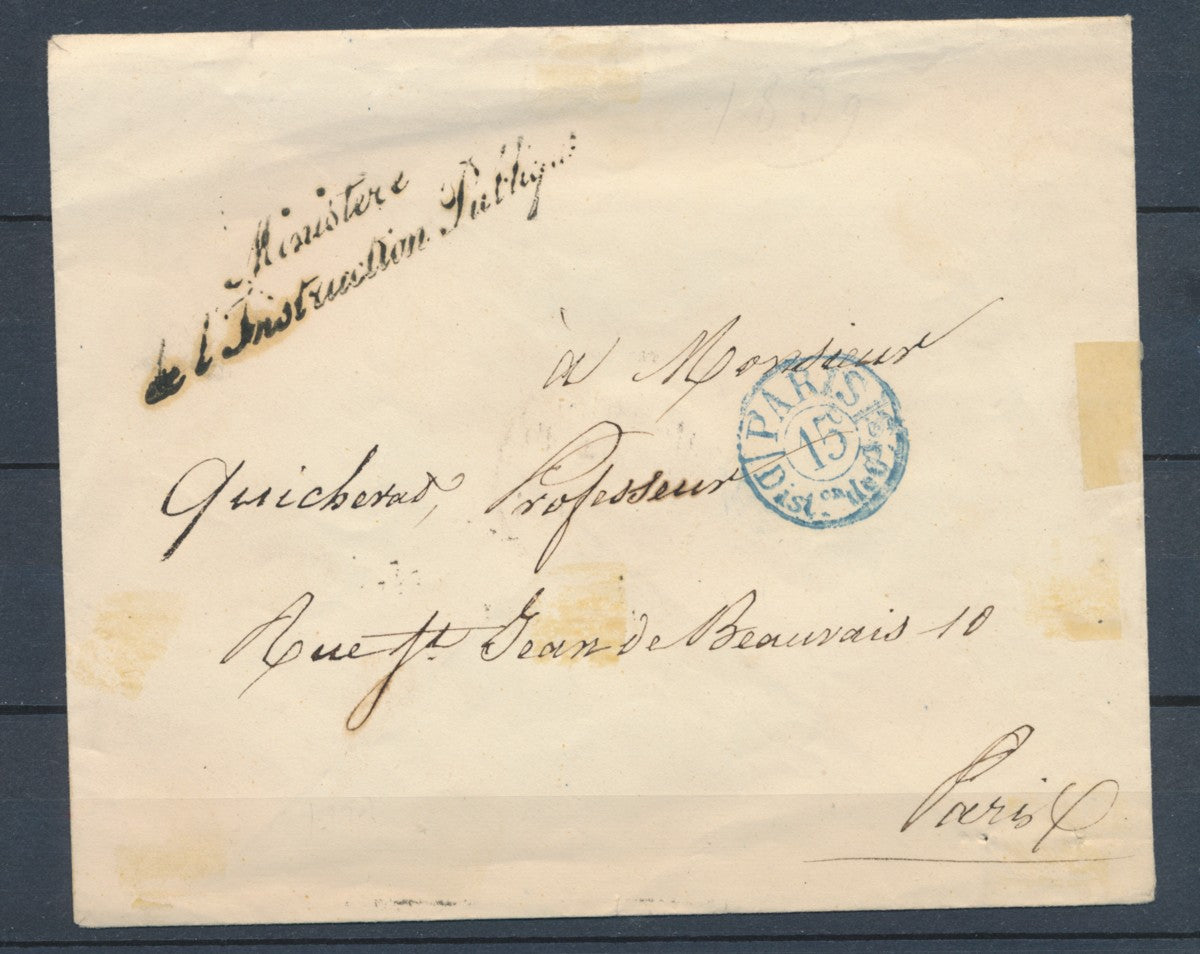 1839
Ministere
de l'Instruction Publique
à Monsieur
PARIS
15
Dist.on de
Quicherat, Professeur
Rue St Jean de Beauvais 10
Paris